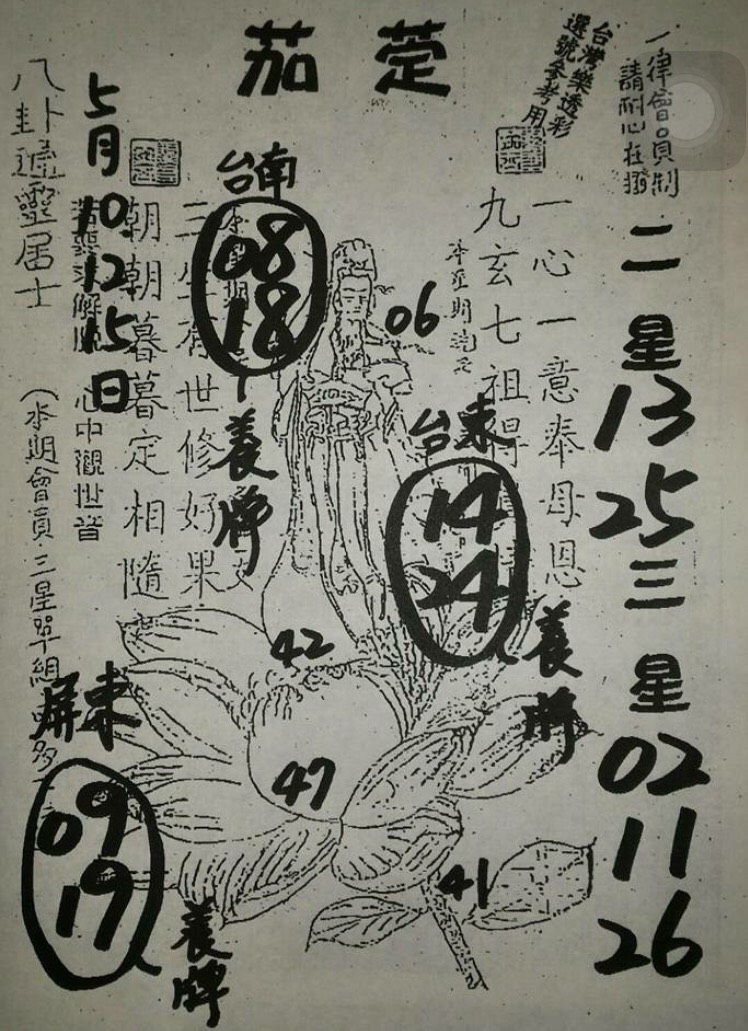 茄萣
台灣樂透彩
選號參考用
一律會員制
請耐心在撥
二星
13
25
三星
02
11
26
一心一意奉母恩
九玄七祖得
台東
14
24
養牌
06
台南
08
18
養牌
世修好果
朝朝暮暮定相隨
心中觀世音
5月10.12.15日
八卦遁靈居士
(本期會員三星單組
42
47
41
屏東
09
19
養牌